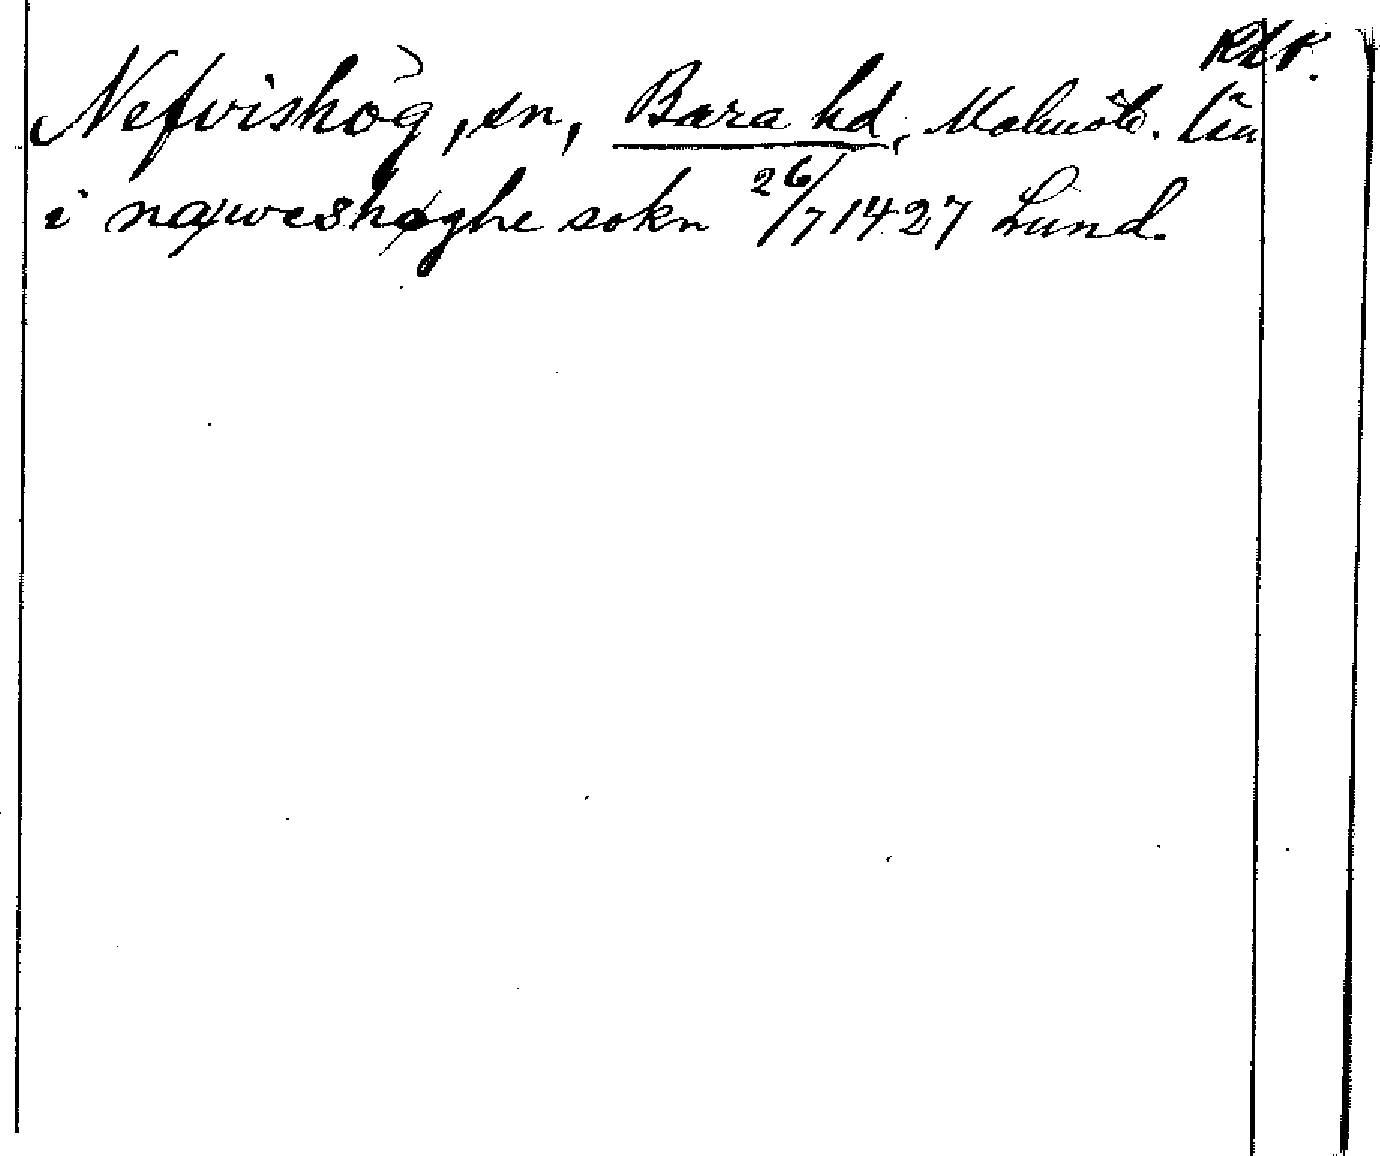 RLr.
Nefvishög, sn, Bara hd, Malmöh. län
i næweshøghe sokn 26/7 1427 Lund.